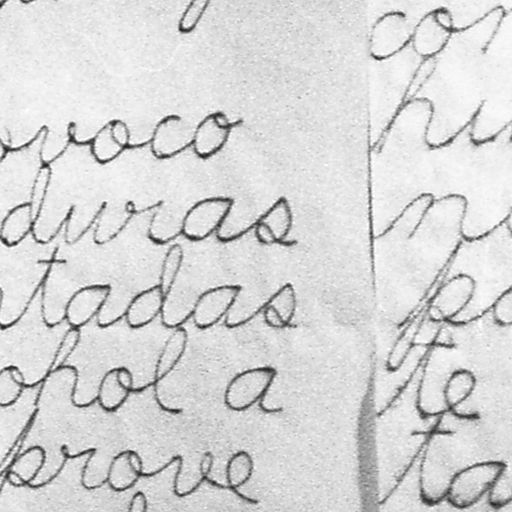 ovoco
duras
tadas
ohol a
prove
con
hu
te
ta